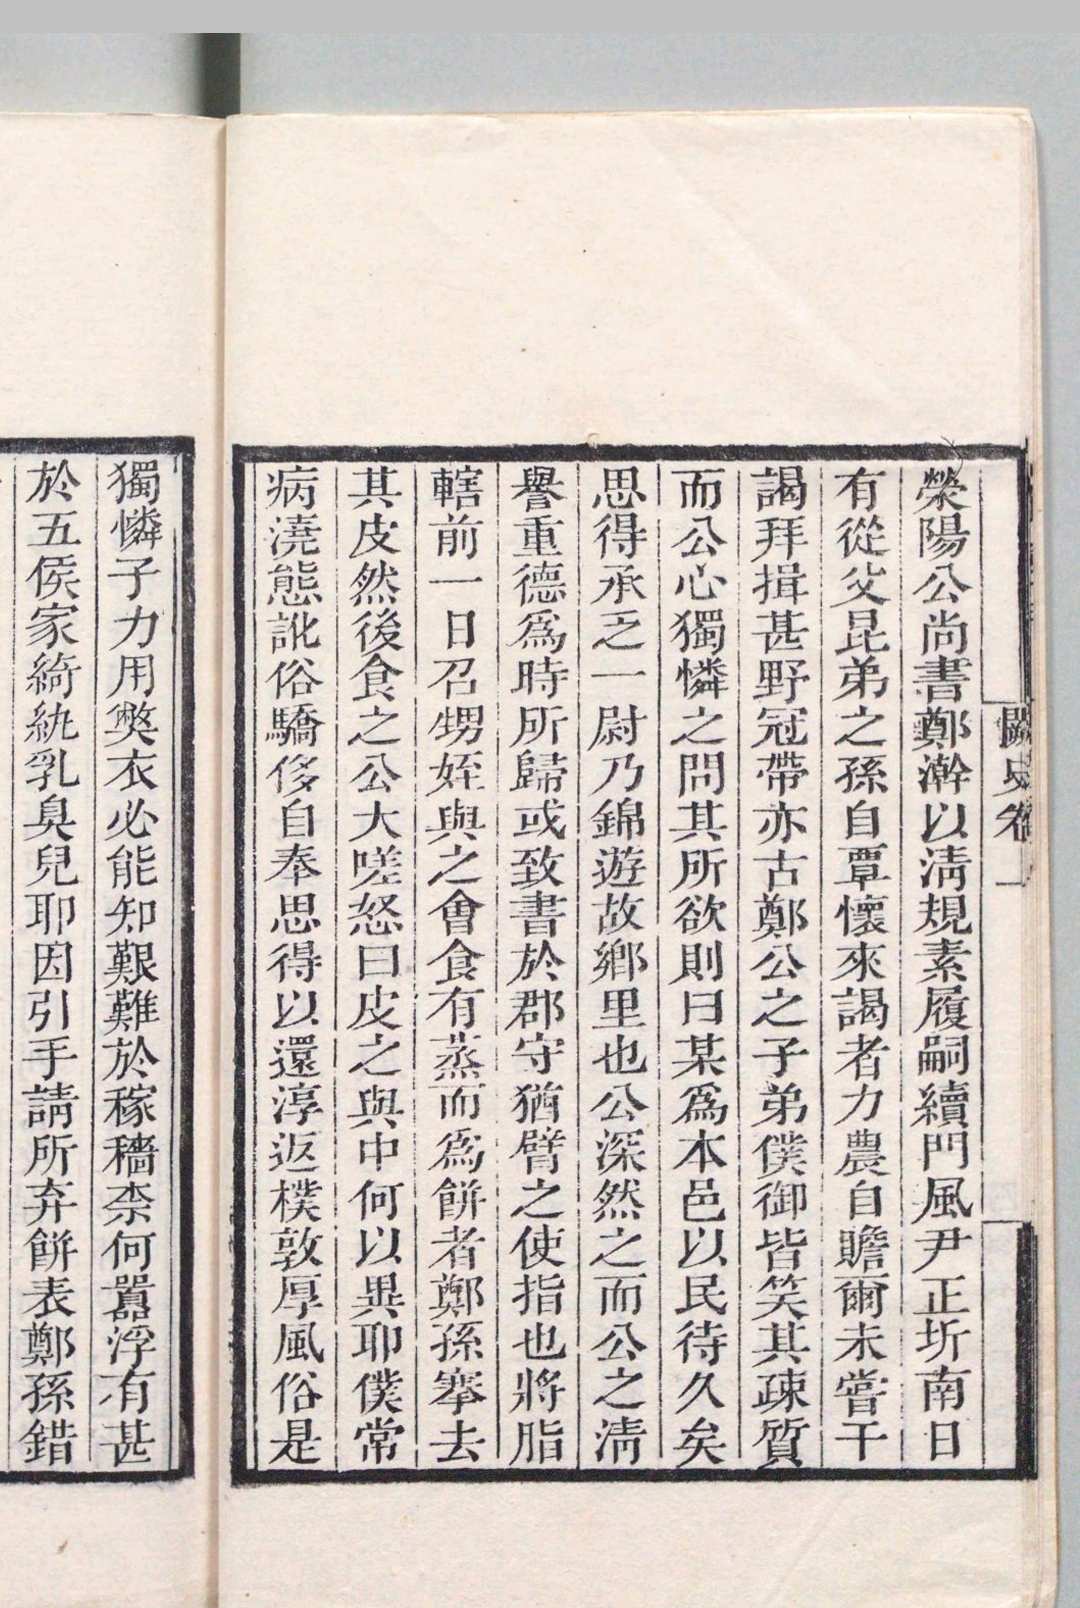 闕史卷一
滎陽公尚書鄭澣以淸規素履嗣續門風尹正圻南日
有從父昆弟之孫自覃懷來謁者力農自贍爾未嘗干
謁拜揖甚野冠帶亦古鄭公之子弟僕御皆笑其疎質
而公心獨憐之問其所欲則曰某爲本邑以民待久矣
思得承乏一尉乃錦遊故鄉里也公深然之而公之淸
譽重德爲時所歸或致書於郡守猶臂之使指也將脂
轄前一日召甥姪與之會食有蒸而爲餅者鄭孫搴去
其皮然後食之公大嗟怒曰皮之與中何以異耶僕常
病澆態訛俗驕侈自奉思得以還淳返樸敦厚風俗是
獨憐子力用獘衣必能知艱難於稼穡柰何囂浮有甚
於五侯家綺紈乳臭兒耶因引手請所弃餅表鄭孫錯